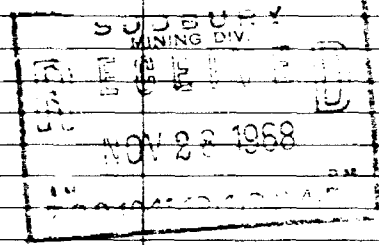 SUDBURY
MINING DIV.
RECEIVED
NOV 28 1968